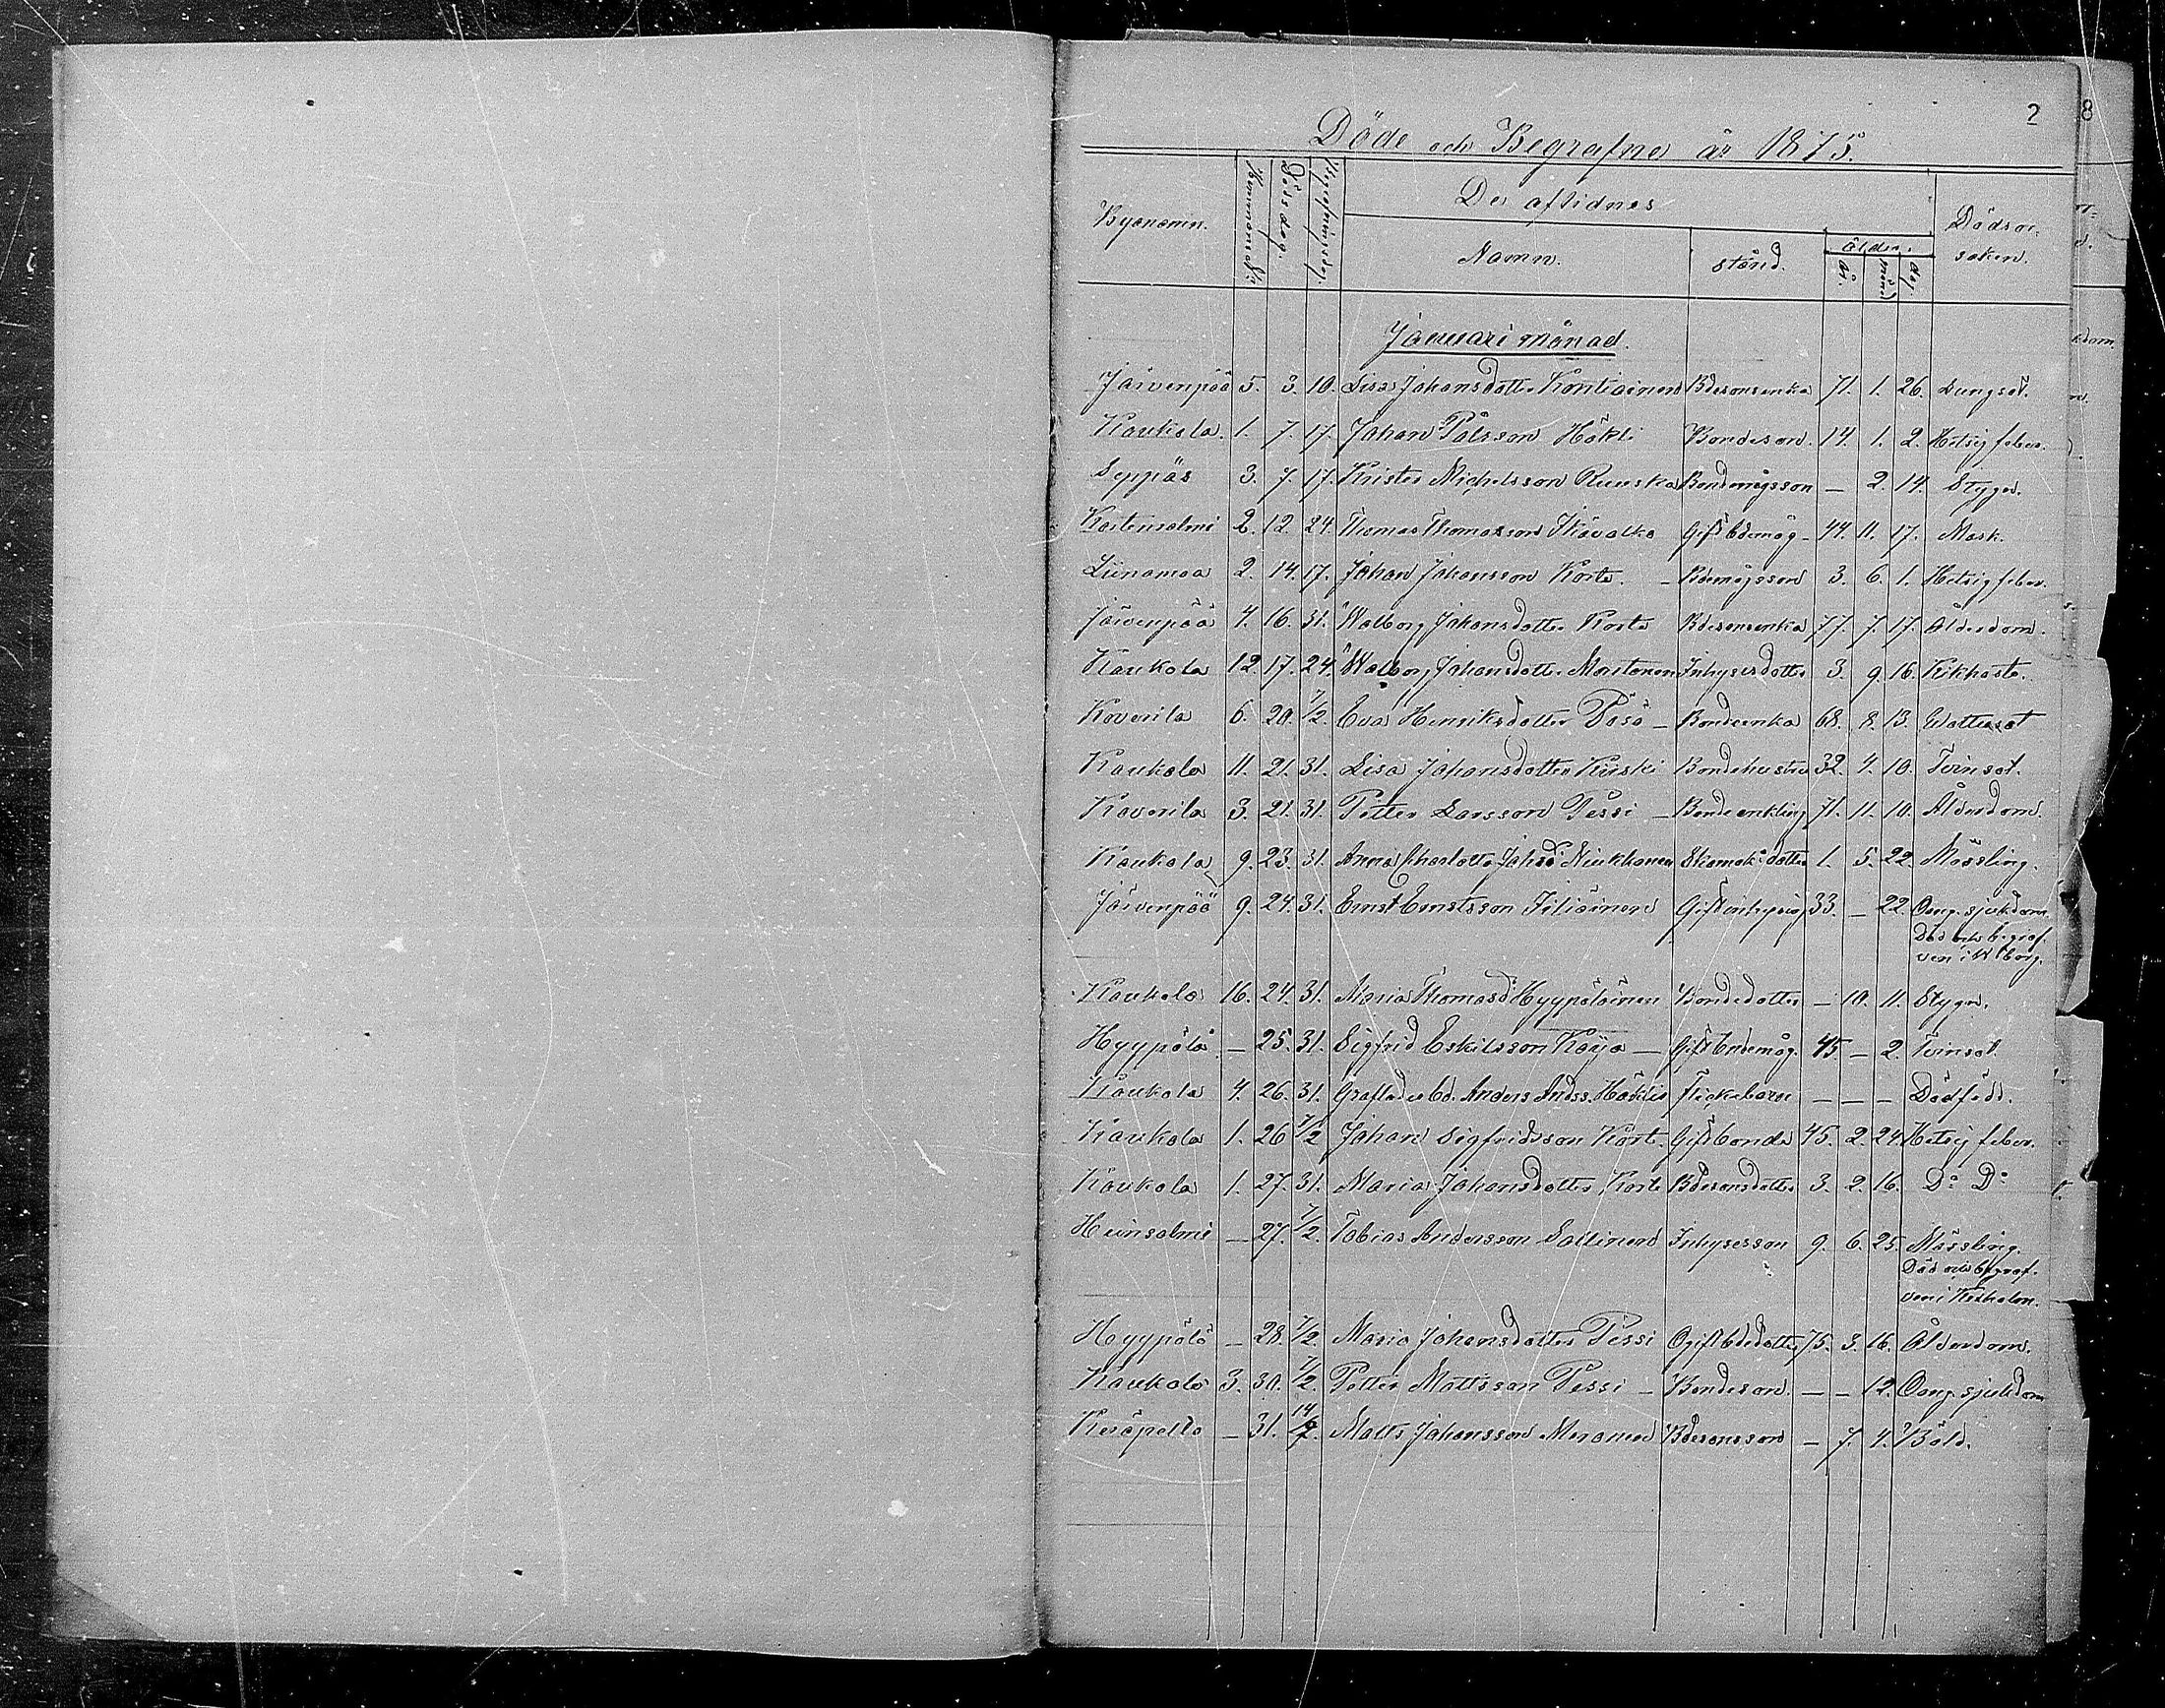 2
8
Döde och Begrafne år 1875.
Byanamn. Hemmans Nr. Dödsdag. Begrafningsdag. De aflidnes Dödsor-
Namn. stånd. Ålder. saken.
År. Månad Dag.
Januari månad.
Järvenpää 5. 3. 10. Lisa Johansdotter Kontiainen Bdesonsenka 71. 1. 26. Lungsot.
Kaukola. 1. 7. 17. Johan Pålsson Häkli Bondeson. 14. 1. 2. Hetsig feber.
3. 7. 17. Krister Michelsson Ruuska Bondemågsson — 2. 14. Stygn.
Kortensalmi 2. 12. 24. Thomas Thomasson Gift bdemåg - 44. 11. 17. Mask.
Liinamaa 2. 14. 17. Johan Johansson Korte. - Bdemågsson 3. 6. 1. Hetsig feber.
Järvenpää 4. 16. 31. Walborg Johansdotter Korte Bdesonsenka 77. 7. 17. Ålderdom.
Kaukola 12. 17. 24. Walborg Johansdotter Inhysesdotter 3. 9. 16. Kikhosta.
Koverila 6. 20. 7/2. Eva Henriksdotter Pösö - Bondeenka 68. 8. 13. Wattusot
Kaukola 11. 21. 31. Lisa Johansdotter Kiiski Bondehustru 32. 4. 10. Tvinsot.
Koverila 3. 21. 31. Petter Larsson Pessi - Bondeenkling 71. 11. 10. Ålderdom.
Kaukola 9. 23. 31. Anna Charlotta Johsd: Niukkanen Skomak: dotter 1. 5. 22. Mässling.
Järvenpää 9. 24. 31. Ernst Ernstsson Jiliäinen Gift inhysing 33. — 22. Oang. sjukdom
Död och begraf-
ven i Wiborg.
Kaukola 16. 24. 31. Maria Thomasd: Hyypöläinen Bondedotter — 10. 11. Stygn.
Hyypölä — 25. 31. Sigfrid Eskilsson Kaija — Gift bndemåg. 45 — 2. Tvinsot.
Kaukola 4. 26. 31. Anders Andss. Häkli Flickebarn — — — Dödfödd.
Kaukola 1. 26 7/2 Johan Sigfridsson Kort. Gift bonde 45. 2. 24. Hetsig feber.
Kaukola 1. 27. 31. Maria Johansdotter Korte Bdesonsdotter 3. 2. 16. Do Do
Heinsalmi — 27. 7/2. Tobias Andersson Sallinen Inhysesson 9. 6. 25. Mässling.
Död och begraf-
ven i Kexholm.
Hyypölä — 28. 7/2. Maria Johansdotter Pessi Ogift bdedotter 75. 3. 16. Ålderdom.
Kaukola 3. 30. 7/2. Petter Mattsson Pessi - Bondeson. — — 12. Oang. sjukdom
Keräpelto — 31. Matts Johansson Meronen Bdesonsson — 7. 4. Böld.